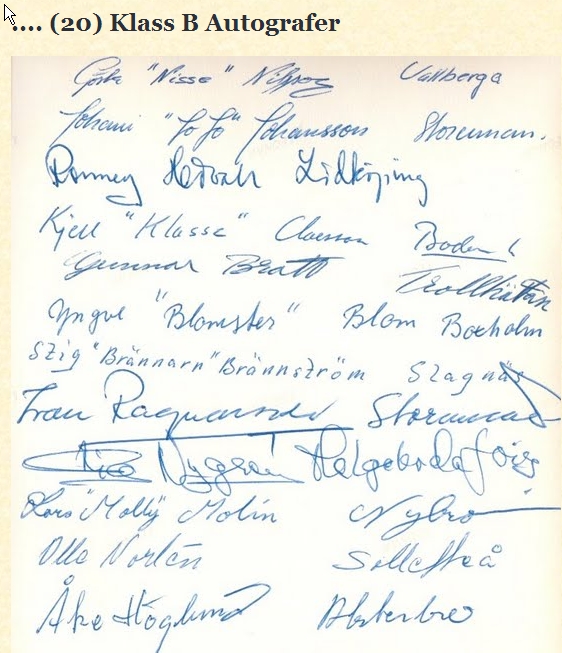 .... (20) Klass B Autografer
Gösta "Nisse" Nilsson Vallberga
"Jo Jo" Johansson Storuman.
Ronney Hedvall Lidköping
Kjell "Klasse" Claesson Boden
Gunnar Bratt Trollhättan
Yngve "Blomster" Blom Boxholm
Stig "Brännarn" Brännström Slagnäs
Storuman
Nygren Helgeboda
Lars "Molly" Molin Nybro
Olle Norlén Sollefteå
Åke Höglund Alsterbro